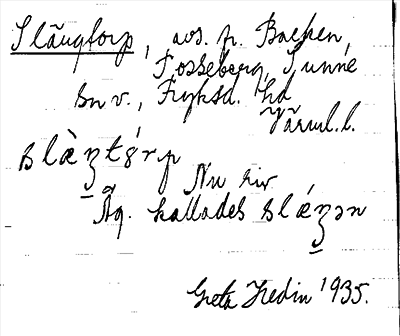 Slängtorp, avs. fr. Backen,
Fosseberg, Sunne
sn v., Fryksd. hd
Värml. l.
Nu riv.
Äg. kallades
Greta Hedin 1935.